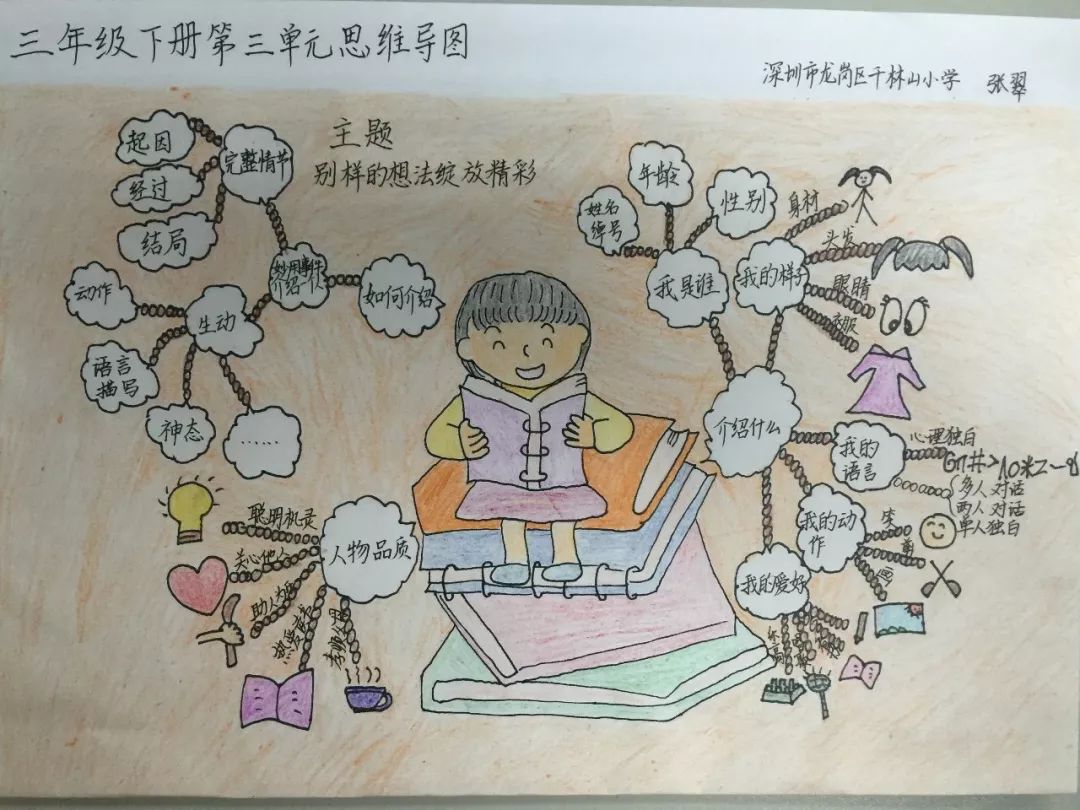 三年级下册第三单元思维导图
深圳市龙岗区千林山小学 张翠
主题
别样的想法绽放精彩
完整情节
起因
经过
结局
妙用事件
介绍一人
如何介绍
生动
动作
语言
描写
神态
……
人物品质
聪明机灵
关心他人
助人为乐
热爱
介绍什么
我是谁
姓名
绰号
年龄
性别
我的样子
身材
头发
眼睛
衣服
我的
语言
心理独白
多人对话
两人对话
单人独白
我的动
作
笑
画
我的爱好